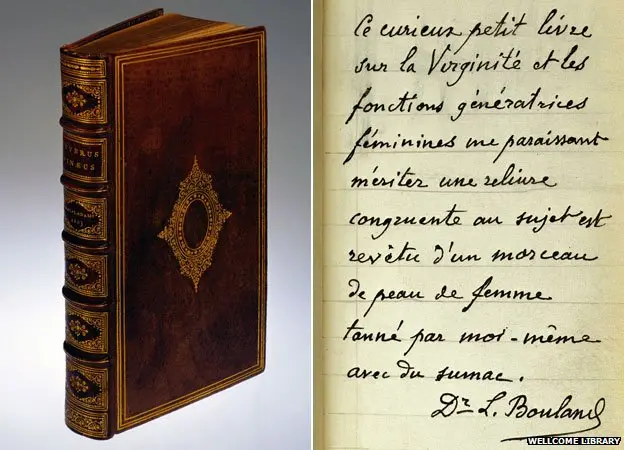 Ce curieux petit livre
sur la Virginité et les
fonctions génératrices
féminines me paraissant
mériter une reliure
congruente au sujet est
revêtu d'un morceau
de peau de femme
tanné par moi-même
avec du sumac.
Dr L. Bouland
WELLCOME LIBRARY